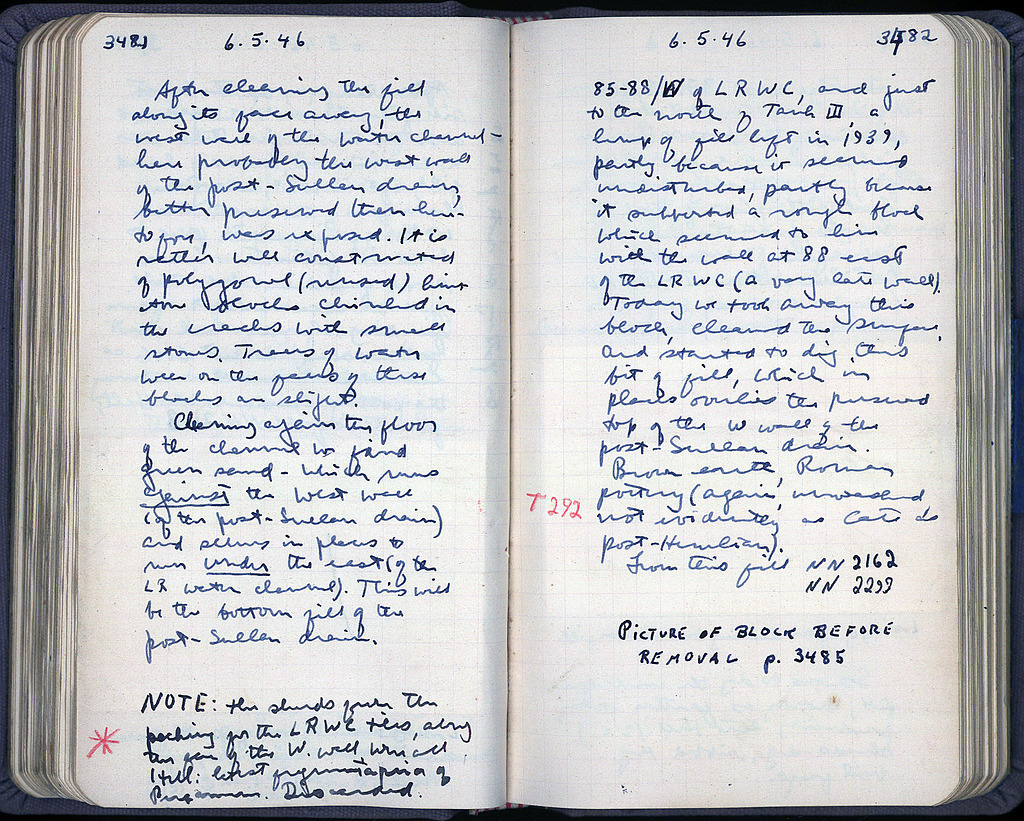 3481
6.5.46
After cleaning the fill
along its face away, the
west wall of the water channel –
here probably the west wall
of the post-Sullan drain,
better preserved than here-
tofore, was exposed. It is
rather well constructed
of polygonal (reused) lime
stone blocks chinked in
the cracks with small
stones. Traces of water
wear on the faces of these
blocks are slight.
Cleaning again the floor
of the channel we find
green sand – which runs
against the west wall
(of the post-Sullan drain)
and seems in places to
run under the east (of the
LR water channel). This will
be the bottom fill of the
post-Sullan drain.
NOTE: the sherds from the
packing for the LRWC tiles, along
the face of the W. wall were all
Hell: latest
Pergamene. Discarded.
6.5.46
3482
85-88/IV of LRWC, and just
to the north of Tank III, a
lump of fill left in 1939,
partly because it seemed
undisturbed, partly because
it supported a rough block
which seemed to line
with the wall at 88 east
of the LRWC (a very late wall).
Today we took away this
block, cleaned the surface,
and started to dig this
bit of fill, which in
places overlies the preserved
top of the W wall of the
post-Sullan drain.
Brown earth, Roman
pottery (again, unwashed
not evidently as late as
post-Herulian).
T 292
From this fill NN 2162
NN 2299
PICTURE OF BLOCK BEFORE
REMOVAL p. 3485